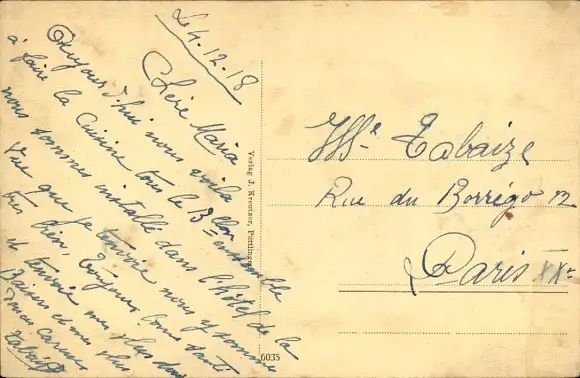 Le 4.12.18
Chère Maria
Aujour d'hui nous voila
à faire la Cuisine tous le Bon ensemble
nous sommes installé dans l'hotel de la
Vue que je t'envoie nous y sommes
très bien, Toujours bonne santé
et t'envoie mes plus doux
Baisers et mes plus
caresses
Tabaize
Verlag J. Kreutzer, Püttlingen
6035
Mlle Tabaize
Rue du Borrégo 12
Paris XXe